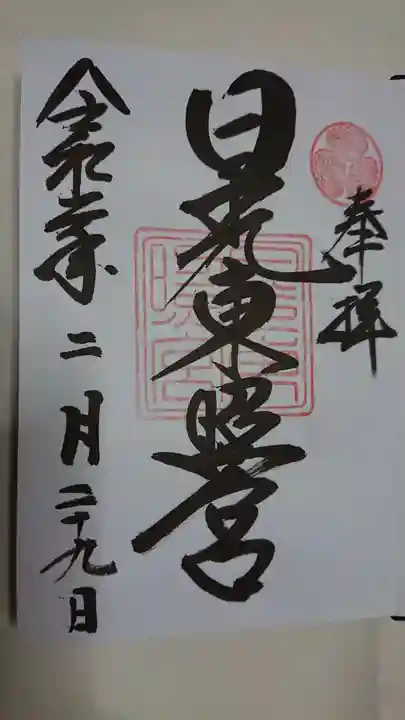 奉拝
日光東照宮
令和 年二月二十九日